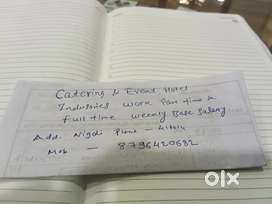 Catering & Event Hotel
Industries work Part time &
full time weekly Base Salary
Add. Nigdi Pune -
Mob - 8796420682
OLX